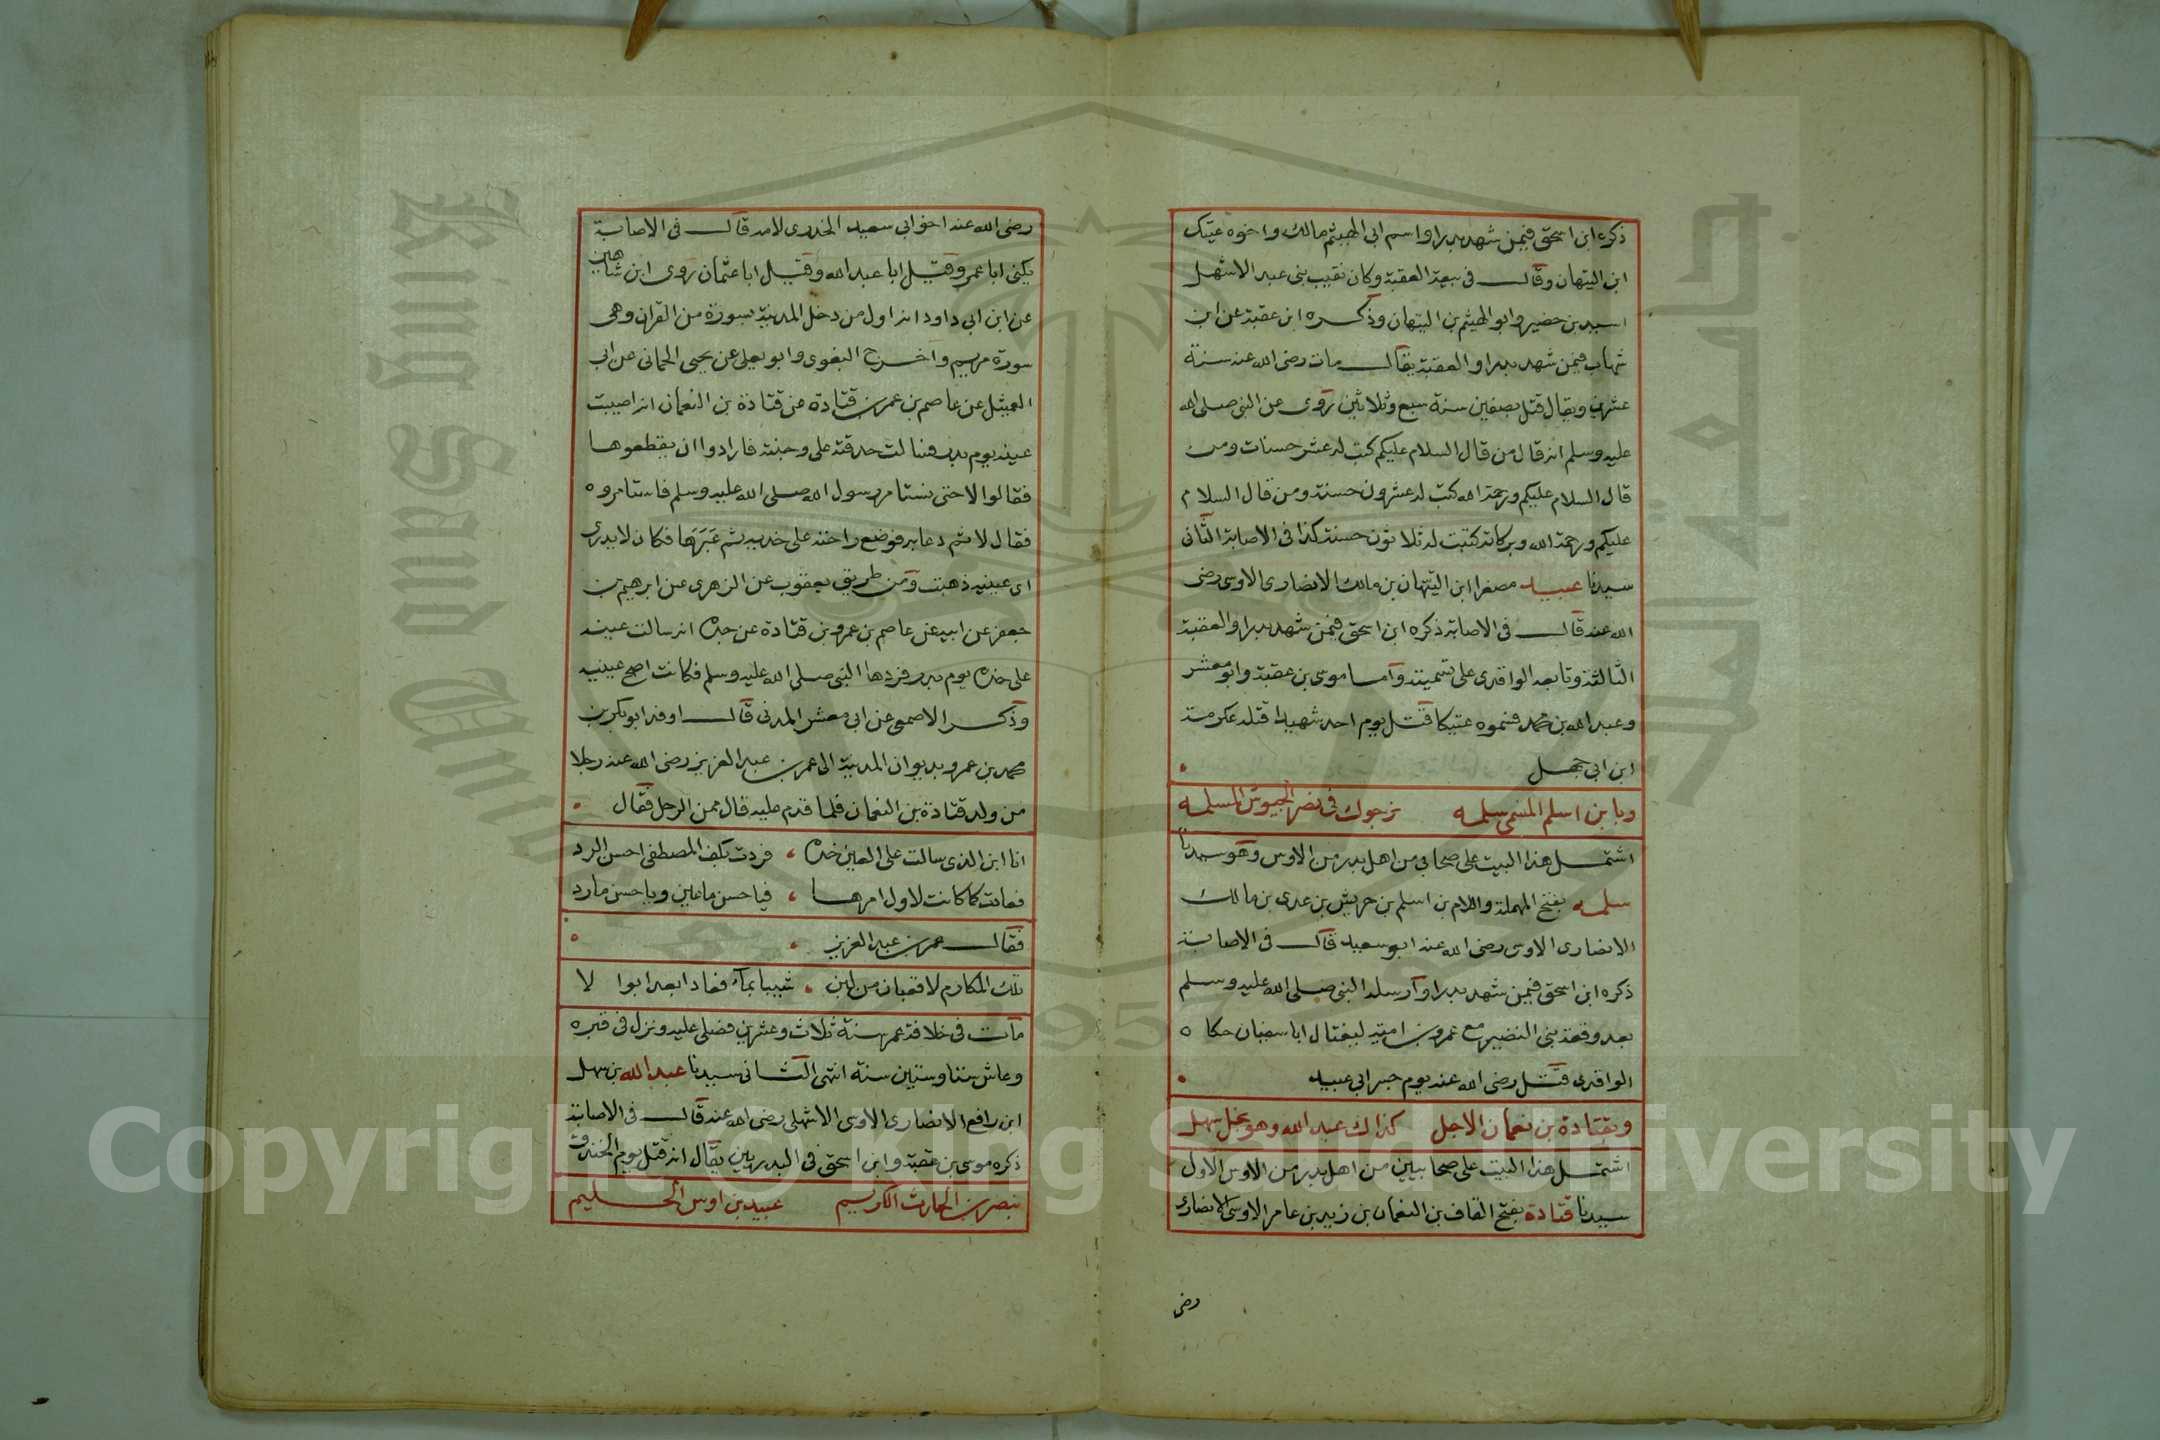 ذكره ابن اسحق فيمن شهد بدرا واسم ابي الهيثم مالك واخوه عتيك
ابن التيهان وقال في بيعة العقبة وكان نقيب بني عبد الاشهل
اسيد بن حضير وابو الهيثم بن التيهان وذكره ابن عقبة عن ابن
شهاب فيمن شهد بدرا والعقبة يقال مات رضى الله عنه سنة
عشرين ويقال قتل بصفين سنة سبع وثلاثين روى عن النبى صلى الله
عليه وسلم انه قال من قال السلام عليكم كتب له عشر حسنات ومن
قال السلام عليكم ورحمة الله كتب له عشرون حسنة ومن قال السلام
عليكم ورحمة الله وبركاته كتبت له ثلاثون حسنة كذا في الاصابة الثانى
سيدنا عبيد مصغرا ابن التيهان بن مالك الانصارى الاوسى رضى
الله عنه قال في الاصابة ذكره ابن اسحق فيمن شهد بدرا والعقبة
الثالثة وتابعه الواقدى على تسميته واما موسى بن عقبة وابو معشر
وعبد الله بن محمد فسموه عتيكا قتل يوم احد شهيدا قتله عكرمة
ابن ابي جهل
وبا بن اسلم المسمى سلمه نرجوك في نصر الجيوش المسلمه
اشتمل هذا البيت على صحابي من اهل بدر من الاوس وهو سيدنا
سلمه بفتح المهملة واللام بن اسلم بن حريش بن عدى بن مالك
الانصارى الاوسى رضى الله عنه ابو سعيد قال في الاصابة
ذكره ابن اسحق فيمن شهد بدرا وارسله النبى صلى الله عليه وسلم
بعد وقعة بنى النضير مع عمرو بن امية ليغتال ابا سفيان حكاه
الواقدى قتل رضى الله عنه يوم جسر ابي عبيد
وبقتادة بن نعمان الاجل كذاك عبد الله وهو نجل سهل
اشتمل هذا البيت على صحابيين من اهل بدر من الاوس الاول
سيدنا قتادة بفتح القاف بن النعمان بن زيد بن عامر الاوسى الانصارى
رضى
رضى الله عنه اخو ابي سعيد الخدرى لامه قال في الاصابة
يكنى ابا عمرو وقيل ابا عبد الله وقيل ابا عثمان روى ابن شاهين
عن ابن ابي داود انه اول من دخل المدينة بسورة من القران وهى
سورة مريم واخرج البغوى وابو يعلى عن يحيى الحمانى عن ابن
الغسيل عن عاصم بن عمر بن قتادة عن قتادة بن النعمان انه اصيبت
عينه يوم بدر فسالت حدقته على وجنته فارادوا ان يقطعوها
فقالوا لا حتى نستامر رسول الله صلى الله عليه وسلم فاستامروه
فقال لا ثم دعا به فوضع راحته على خديه ثم غمزها فكان لا يدرى
اى عينيه ذهبت ومن طريق يعقوب عن الزهرى عن ابرهيم بن
جعفر عن ابيه عن عاصم بن عمرو بن قتادة عن جده انه سالت عينه
على خده يوم بدر فردها النبى صلى الله عليه وسلم فكانت اصح عينيه
وذكر الاصمعى عن ابي معشر المدنى قال اوفد ابو بكر بن
محمد بن عمرو بديوان المدينة الى عمر بن عبد العزيز رضى الله عنه رجلا
من ولد قتادة بن النعمان فلما قدم عليه قال ممن الرجل فقال
انا ابن الذى سالت على العين خده فردت بكف المصطفى احسن الرد
فعادت كما كانت لاول امرها فيا حسن ما عين ويا حسن ما رد
فقال عمر بن عبد العزيز
تلك المكارم لا قعبان من لبن شيبا بماء فعادا بعد ابوا لا
مات في خلافة عمر سنة ثلاث وعشرين فصلى عليه ونزل في قبره
وعاش خمسا وستين سنة انتهى الثانى سيدنا عبد الله بن سهل
ابن رافع الانصارى الاوسى الاشهلى رضى الله عنه قال في الاصابة
ذكره موسى بن عقبة وابن اسحق في البدريين يقال انه قتل يوم الخندق
بنصر بن الحارث الكريم عبيد بن اوس الحليم
King Saud University
1957
Copyright © King Saud University